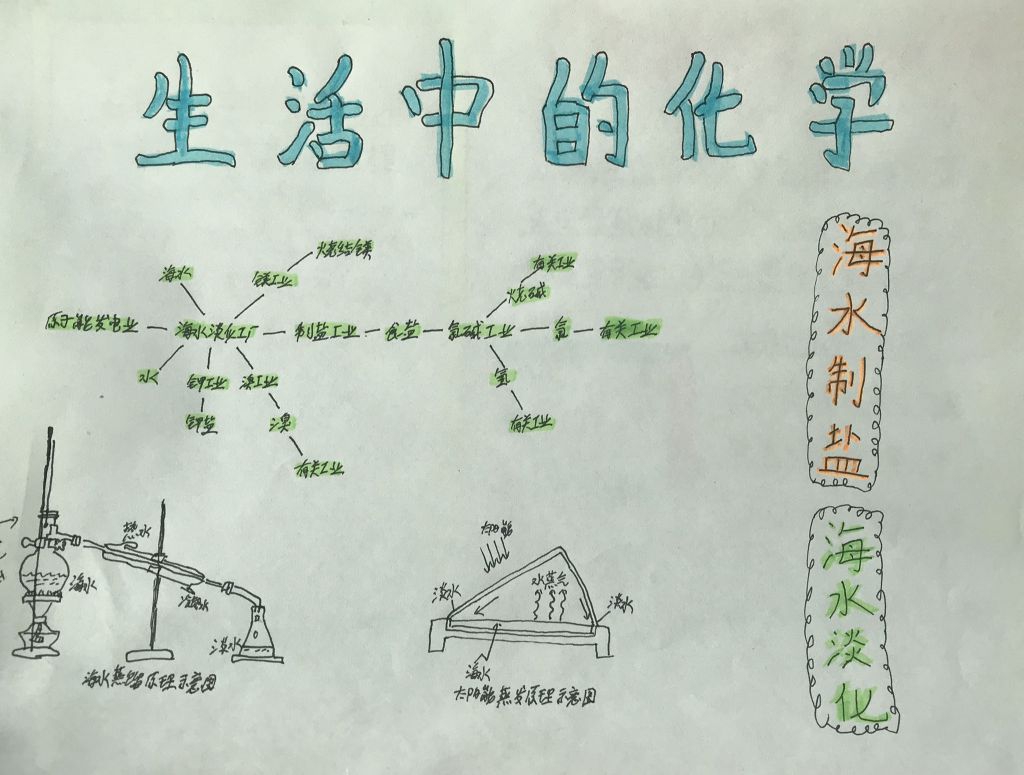 生活中的化学
烧结镁
海水
镁工业
有关工业
烧碱
原子能发电业
海水淡化工厂
制盐工业
食盐
氯碱工业
氯
有关工业
水
钾工业
溴工业
氢
钾盐
溴
有关工业
有关工业
海水制盐
热水
海水
冷却水
淡水
海水蒸馏原理示意图
太阳能
水蒸气
淡水
淡水
海水
太阳能蒸发原理示意图
海水淡化